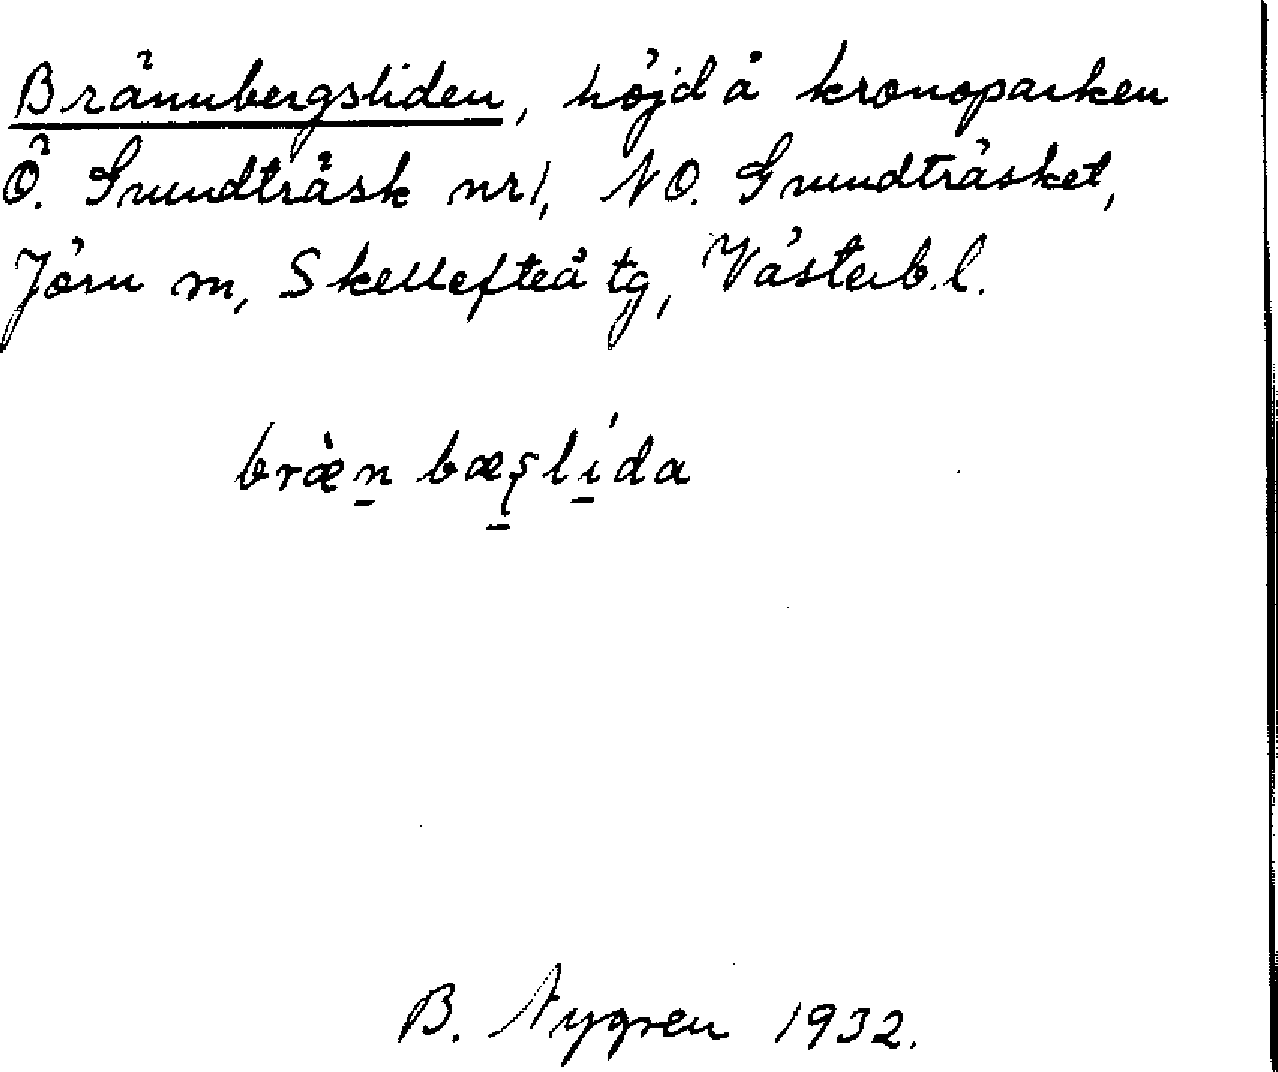 Brännbergsliden, höjd å kronoparken
Ö. Grundträsk nr 1, NO. Grundträsket,
Jörn sn, Skellefteå tg, Västerb. l.
bræ̀n bæşlída
B. Nygren 1932.